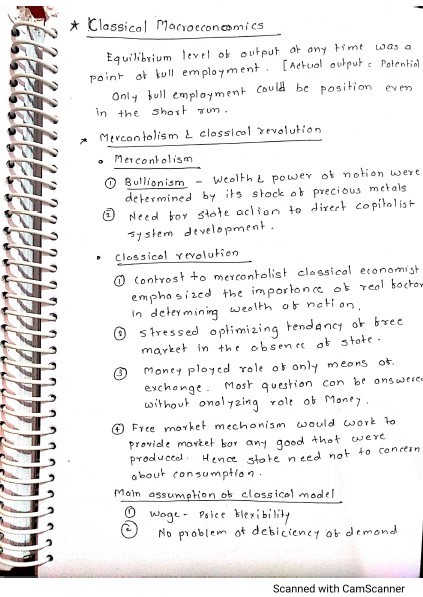 * Classical Macroeconomics
Equilibrium level of output at any time was a
point of full employment. [Actual output = Potential
Only full employment could be position even
in the short run.
* Mercantalism & classical revolution
• Mercantalism
① Bullionism - Wealth & power of nation were
determined by its stock of precious metals
② Need for state action to direct capitalist
system development.
• Classical revolution
① Contrast to mercantalist classical economist
emphasized the importance of real factor
in determining wealth of nation.
② Stressed optimizing tendancy of free
market in the absence of state.
③ Money played role of only means of
exchange. Most question can be answere
without analyzing role of Money.
④ Free market mechanism would work to
provide market for any good that were
produced. Hence state need not to concern
about consumption.
Main assumption of classical model
① Wage - Price flexibility
② No problem of deficiency of demand
Scanned with CamScanner